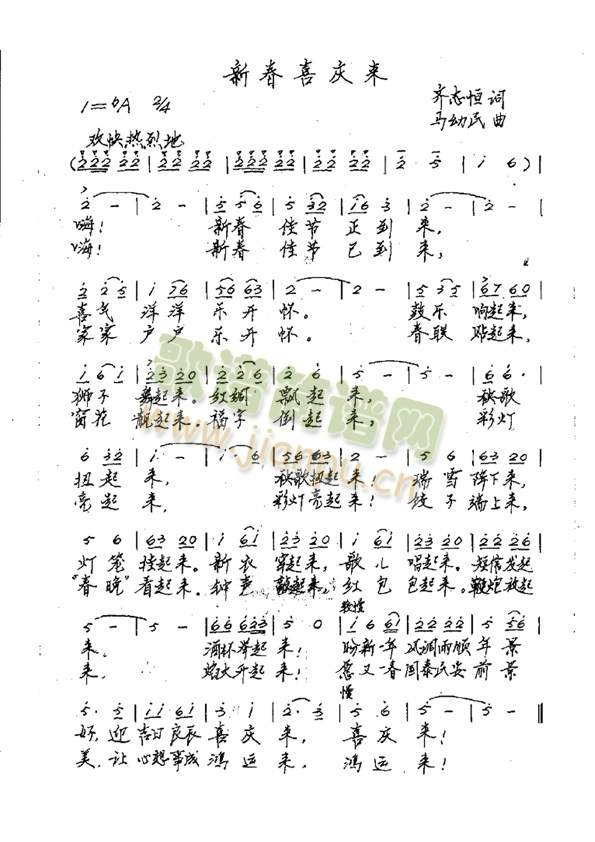 新春喜庆来
1=♭A 2/4
齐志恒 词
马幼民 曲
欢快热烈地
嗨! 新春 佳节 正到 来,
嗨! 新春 佳节 已到 来,
喜气 洋洋 乐开 怀。 鼓乐 响起来,
家家 户户 乐开 怀。 春联 贴起来,
狮子 舞起来。红绸 飘起 来, 秧歌
窗花 靓起来。福字 倒起 来, 彩灯
扭起 来, 秧歌扭起 来! 瑞雪 降下来,
亮起 来, 彩灯亮起 来! 饺子 端上来,
灯笼 挂起来。新衣 穿起来, 歌儿 唱起来。短信发起
"春晚"看起来。钟声 敲起来。红包 包起来。鞭炮放起
较慢
来。 酒杯举起 来! 盼新一年 风调雨顺 年景
来。 焰火升起 来! 愿又一春国泰民安 前景
慢
好, 迎 吉日良辰 喜庆 来, 喜庆 来!
美, 让 心想事成 鸿运 来, 鸿运 来!
歌谱简谱网
www.jianpu.cn